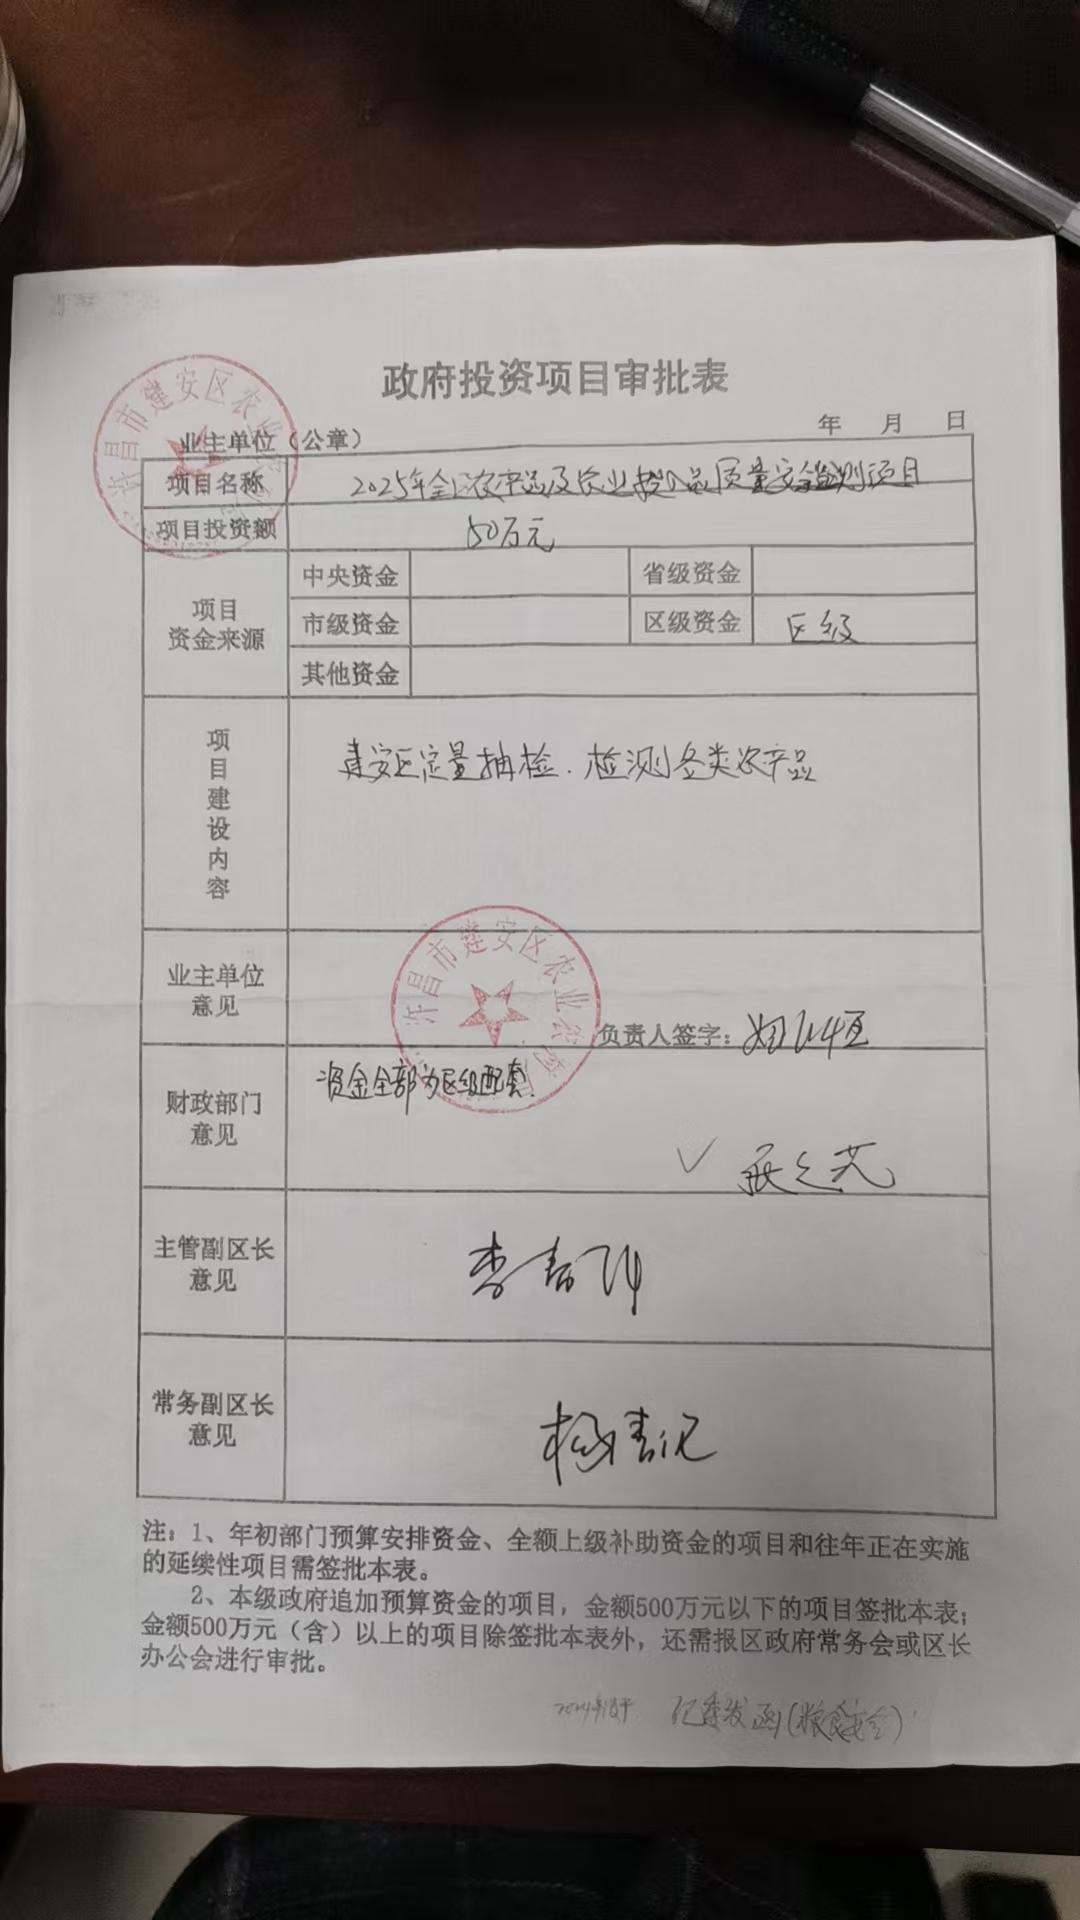 政府投资项目审批表
许昌市建安区农业
业主单位（公章）
年 月 日
项目名称 2025年全区农产品及农业投入品质量安全监测项目
项目投资额 50万元
项目资金来源
中央资金 省级资金
市级资金 区级资金 区级
其他资金
项目建设内容
建安区定量抽检．检测各类农产品
许昌市建安区农业农村局
业主单位意见
负责人签字：
财政部门意见
资金全部为区级配套．
主管副区长意见
常务副区长意见
注：1、年初部门预算安排资金、全额上级补助资金的项目和往年正在实施
的延续性项目需签批本表。
2、本级政府追加预算资金的项目，金额500万元以下的项目签批本表；
金额500万元（含）以上的项目除签批本表外，还需报区政府常务会或区长
办公会进行审批。
纪委发函(粮食安全)